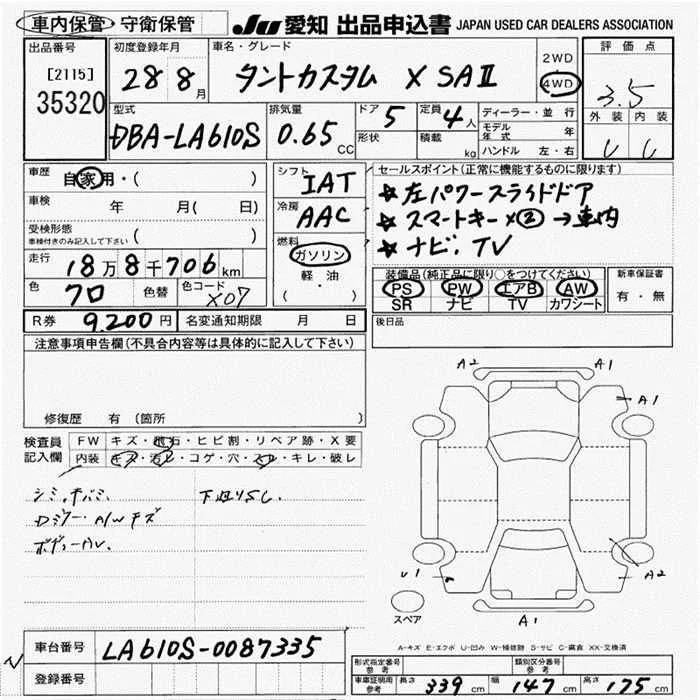 車内保管・守衛保管 JU 愛知 出品申込書 JAPAN USED CAR DEALERS ASSOCIATION
出品番号 [2115] 35320
初度登録年月 28 8月
車名・グレード タントカスタム X SAⅡ
2WD
4WD
評価点 3.5
外装 内装
型式 DBA-LA610S
排気量 0.65 CC
ドア 5 形状
定員 4人 積載 kg
ディーラー・並行
モデル年式 年
ハンドル 左・右
車歴 自家用・( )
車検 年 月( 日)
受検形態 車検付きのみ記入して下さい ( )
走行 18万8千706km
色 クロ 色替 色コード X07
シフト IAT
冷房 AAC
燃料 ガソリン
軽・油
( )
セールスポイント(正常に機能するものに限ります)
★左パワースライドドア
★スマートキー×② →車内
★ナビ、TV
装備品(純正品に限り○をつけてください)
PS PW エアB AW
SR ナビ TV カワシート
新車保証書
有・無
R券 9,200円 名変通知期限 月 日
後日品
注意事項申告欄(不具合内容等は具体的に記入して下さい)
修復歴 有 (箇所 )
検査員記入欄
FW キズ・飛石・ヒビ割・リペア跡・X要
内装 キズ・汚レ・コゲ・穴・スレ・キレ・破レ
シミ、キバミ 下廻りSC.
Dミラー・A/Wキズ
A2 A1
A1
U1 A2
スペア A1
A-キズ E-エクボ U-凹み W-補修跡 S-サビ C-腐食 XX-交換済
車台番号 LA610S-0087335
登録番号
形式指定番号 参考 類別区分番号 参考
車庫証明用 参考 長さ 339cm 幅 147cm 高さ 175cm